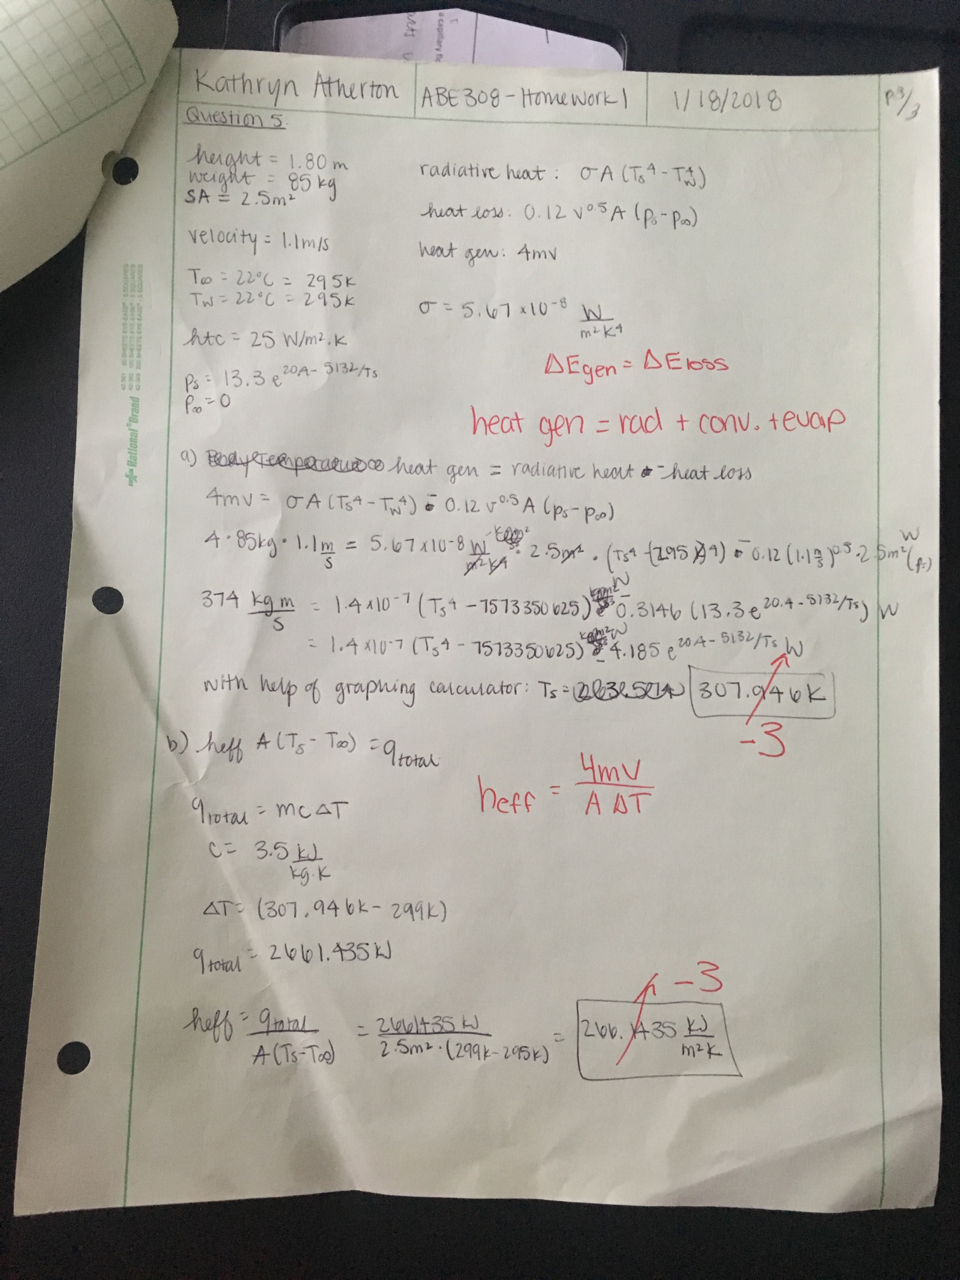 Kathryn Atherton ABE308-Homework 1 1/18/2018 p3/3
Question 5
height = 1.80 m
weight = 85 kg
SA = 2.5m²
velocity = 1.1 m/s
T∞ = 22°C = 295K
Tw = 22°C = 295K
htc = 25 W/m².K
Ps = 13.3 e^20.4 - 5132/Ts
P∞ = 0
radiative heat: σA(Ts⁴-Tw⁴)
heat loss: 0.12 v^0.5 A (Ps-P∞)
heat gen: 4mv
σ = 5.67 x10⁻⁸ W/m²K⁴
ΔEgen = ΔEloss
heat gen = rad + conv. + evap
National® Brand
a) heat gen = radiative heat - heat loss
4mv = σA(Ts⁴-Tw⁴) - 0.12 v^0.5 A (Ps-P∞)
4·85kg·1.1 m/s = 5.67x10-8 W/m²K⁴ · 2.5m² · (Ts⁴-(295K)⁴) - 0.12(1.1 m/s)^0.5 · 2.5m² (Ps) W
374 kg m/s = 1.4x10⁻⁷ (Ts⁴-7573350625) W - 0.3146 (13.3e^20.4-5132/Ts) W
= 1.4x10⁻⁷ (Ts⁴-7573350625) W - 4.185 e^20.4-5132/Ts W
with help of graphing calculator: Ts = 307.946K
-3
b) heff A(Ts-T∞) = qtotal
heff = 4mv/A ΔT
qtotal = mcΔT
c = 3.5 kJ/kg.K
ΔT = (307.946K - 299K)
qtotal = 2661.435KJ
heff = qtotal/A(Ts-T∞) = 2661435 KJ/2.5m²·(299K-295K) = 266.1435 KJ/m²K
-3